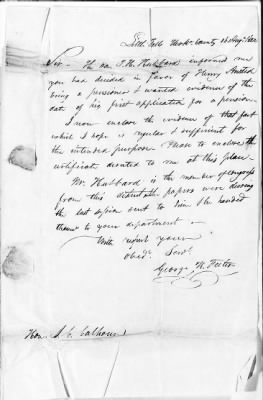 Little Falls Herk. County 13 Aug 1822
Sir. The Hon T. H. Hubbard informed me
you had decided in favor of Henry Hosted
being a pensioner & wanted evidence of the
date of his first application for a pension.
I now enclose the evidence of that fact
which I hope is regular & sufficient for
the intended purpose. Please to enclose the
certificate directed to me at this place.
Mr. Hubbard is the member of congress
from this district & the papers were during
the last session sent to him & he handed
them to your department.
With respect your
obed. Serv.
George H. Feeter
Hon. J. C. Calhoun